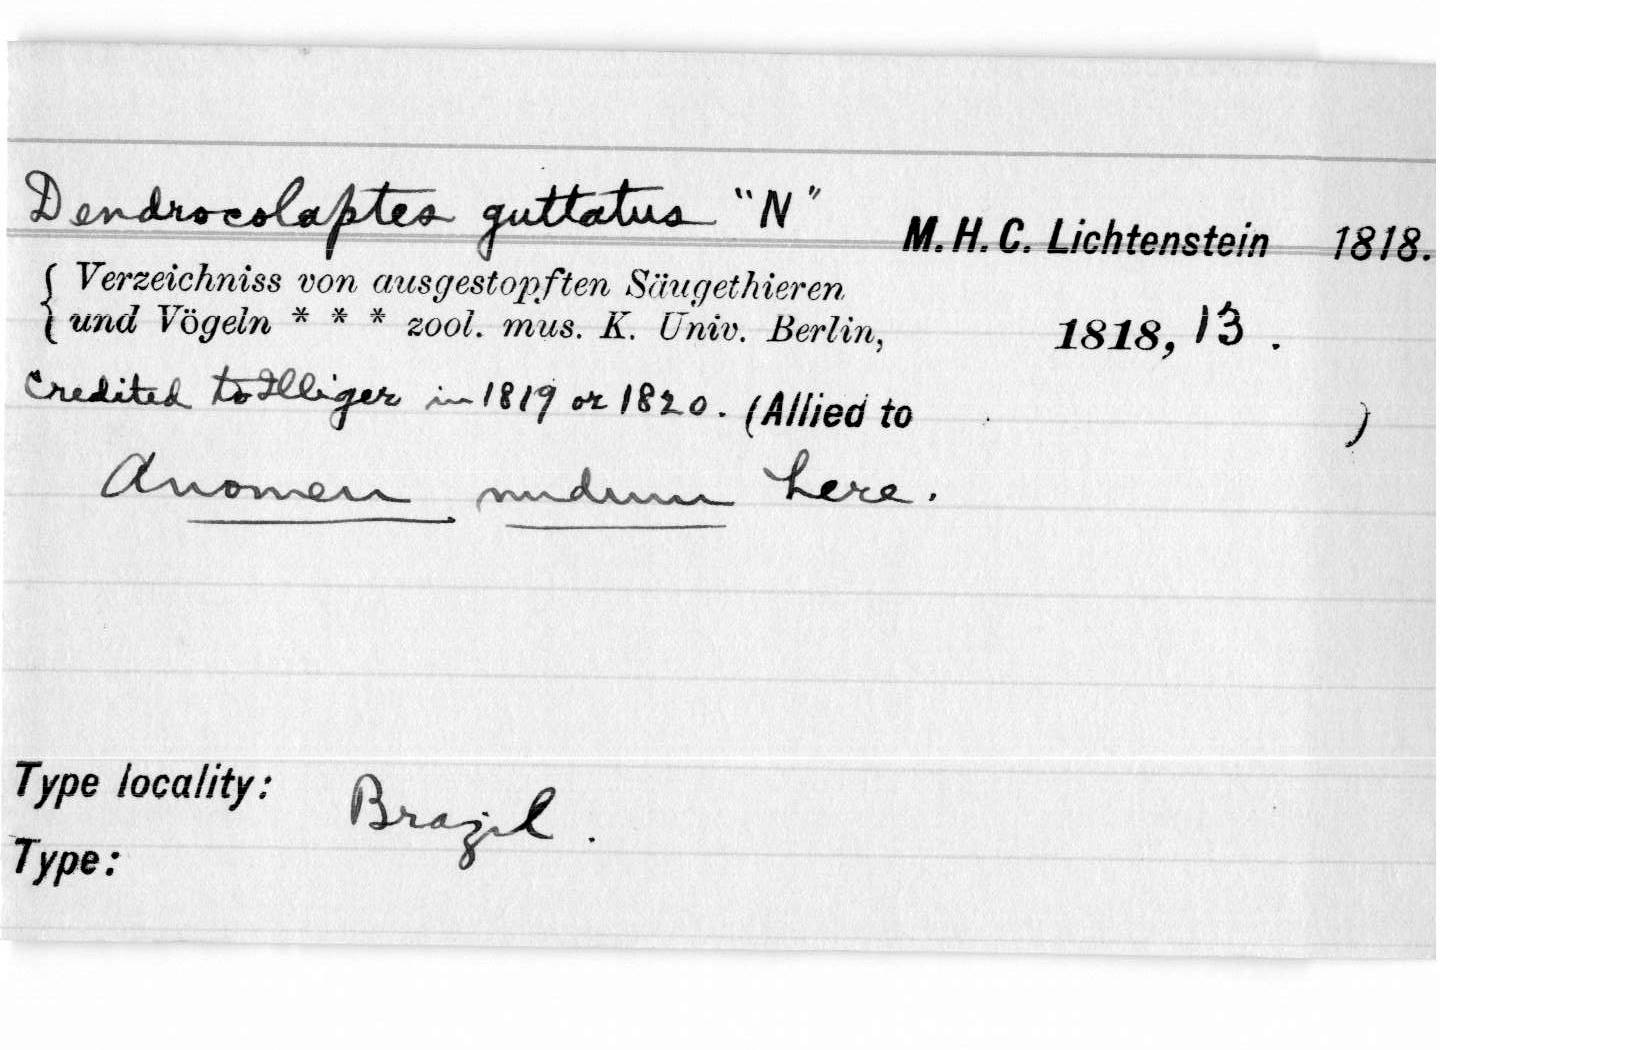 Dendrocolaptes guttatus "N" M. H. C. Lichtenstein 1818.
{ Verzeichniss von ausgestopften Säugethieren
{ und Vögeln * * * zool. mus. K. Univ. Berlin, 1818, 13 .
Credited to Illiger in 1819 or 1820. (Allied to )
A nomen nudum here.
Type locality: Brazil .
Type: